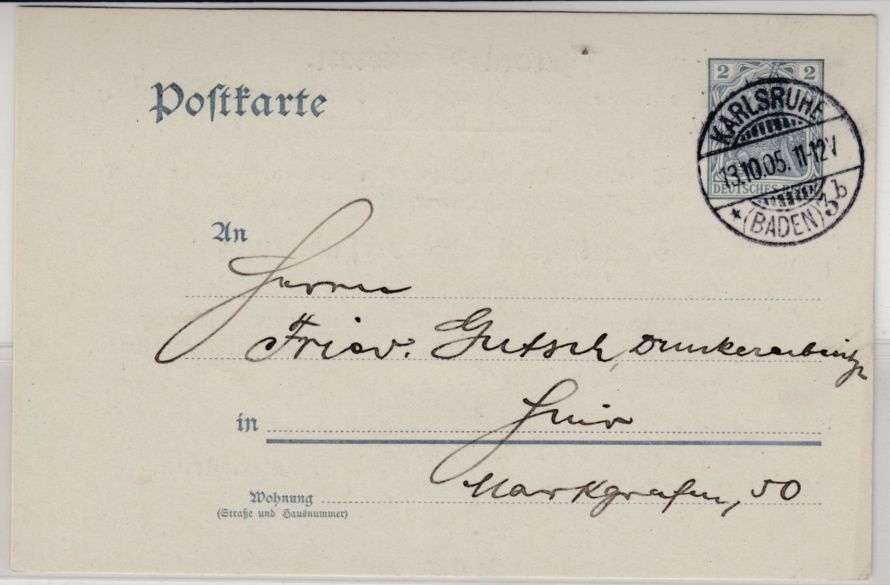 Postkarte
2 2
DEUTSCHES REICH
KARLSRUHE
13.10.05. 11-12V
* (BADEN) 3b
An
Herrn
Friedr. Gutsch, Druckereibesitzer
in Hier
Wohnung Markgrafen, 50
(Straße und Hausnummer)